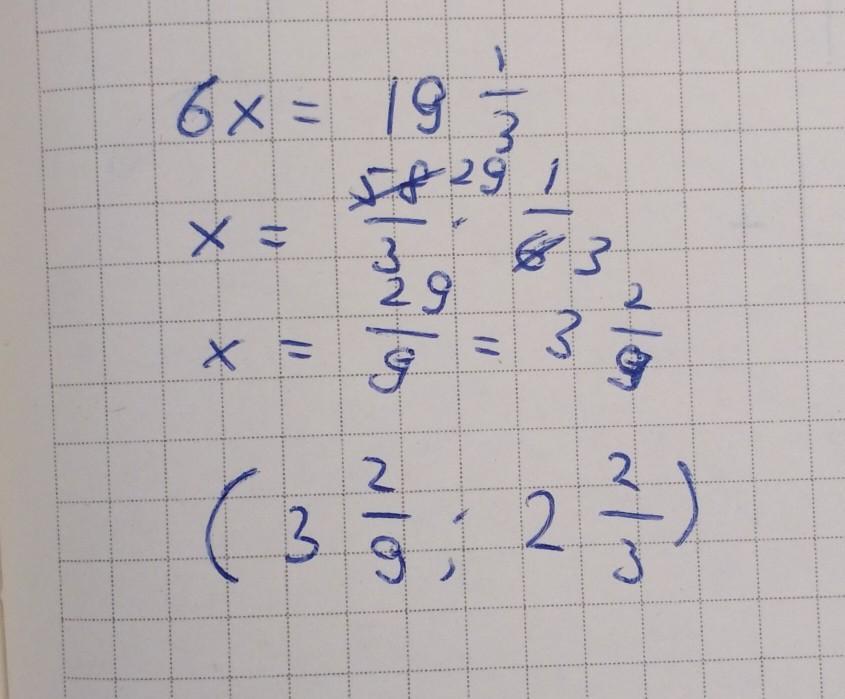 6x = 19 1/3
x = 58/3 29 · 1/6 3
x = 29/9 = 3 2/9
(3 2/9 ; 2 2/3)